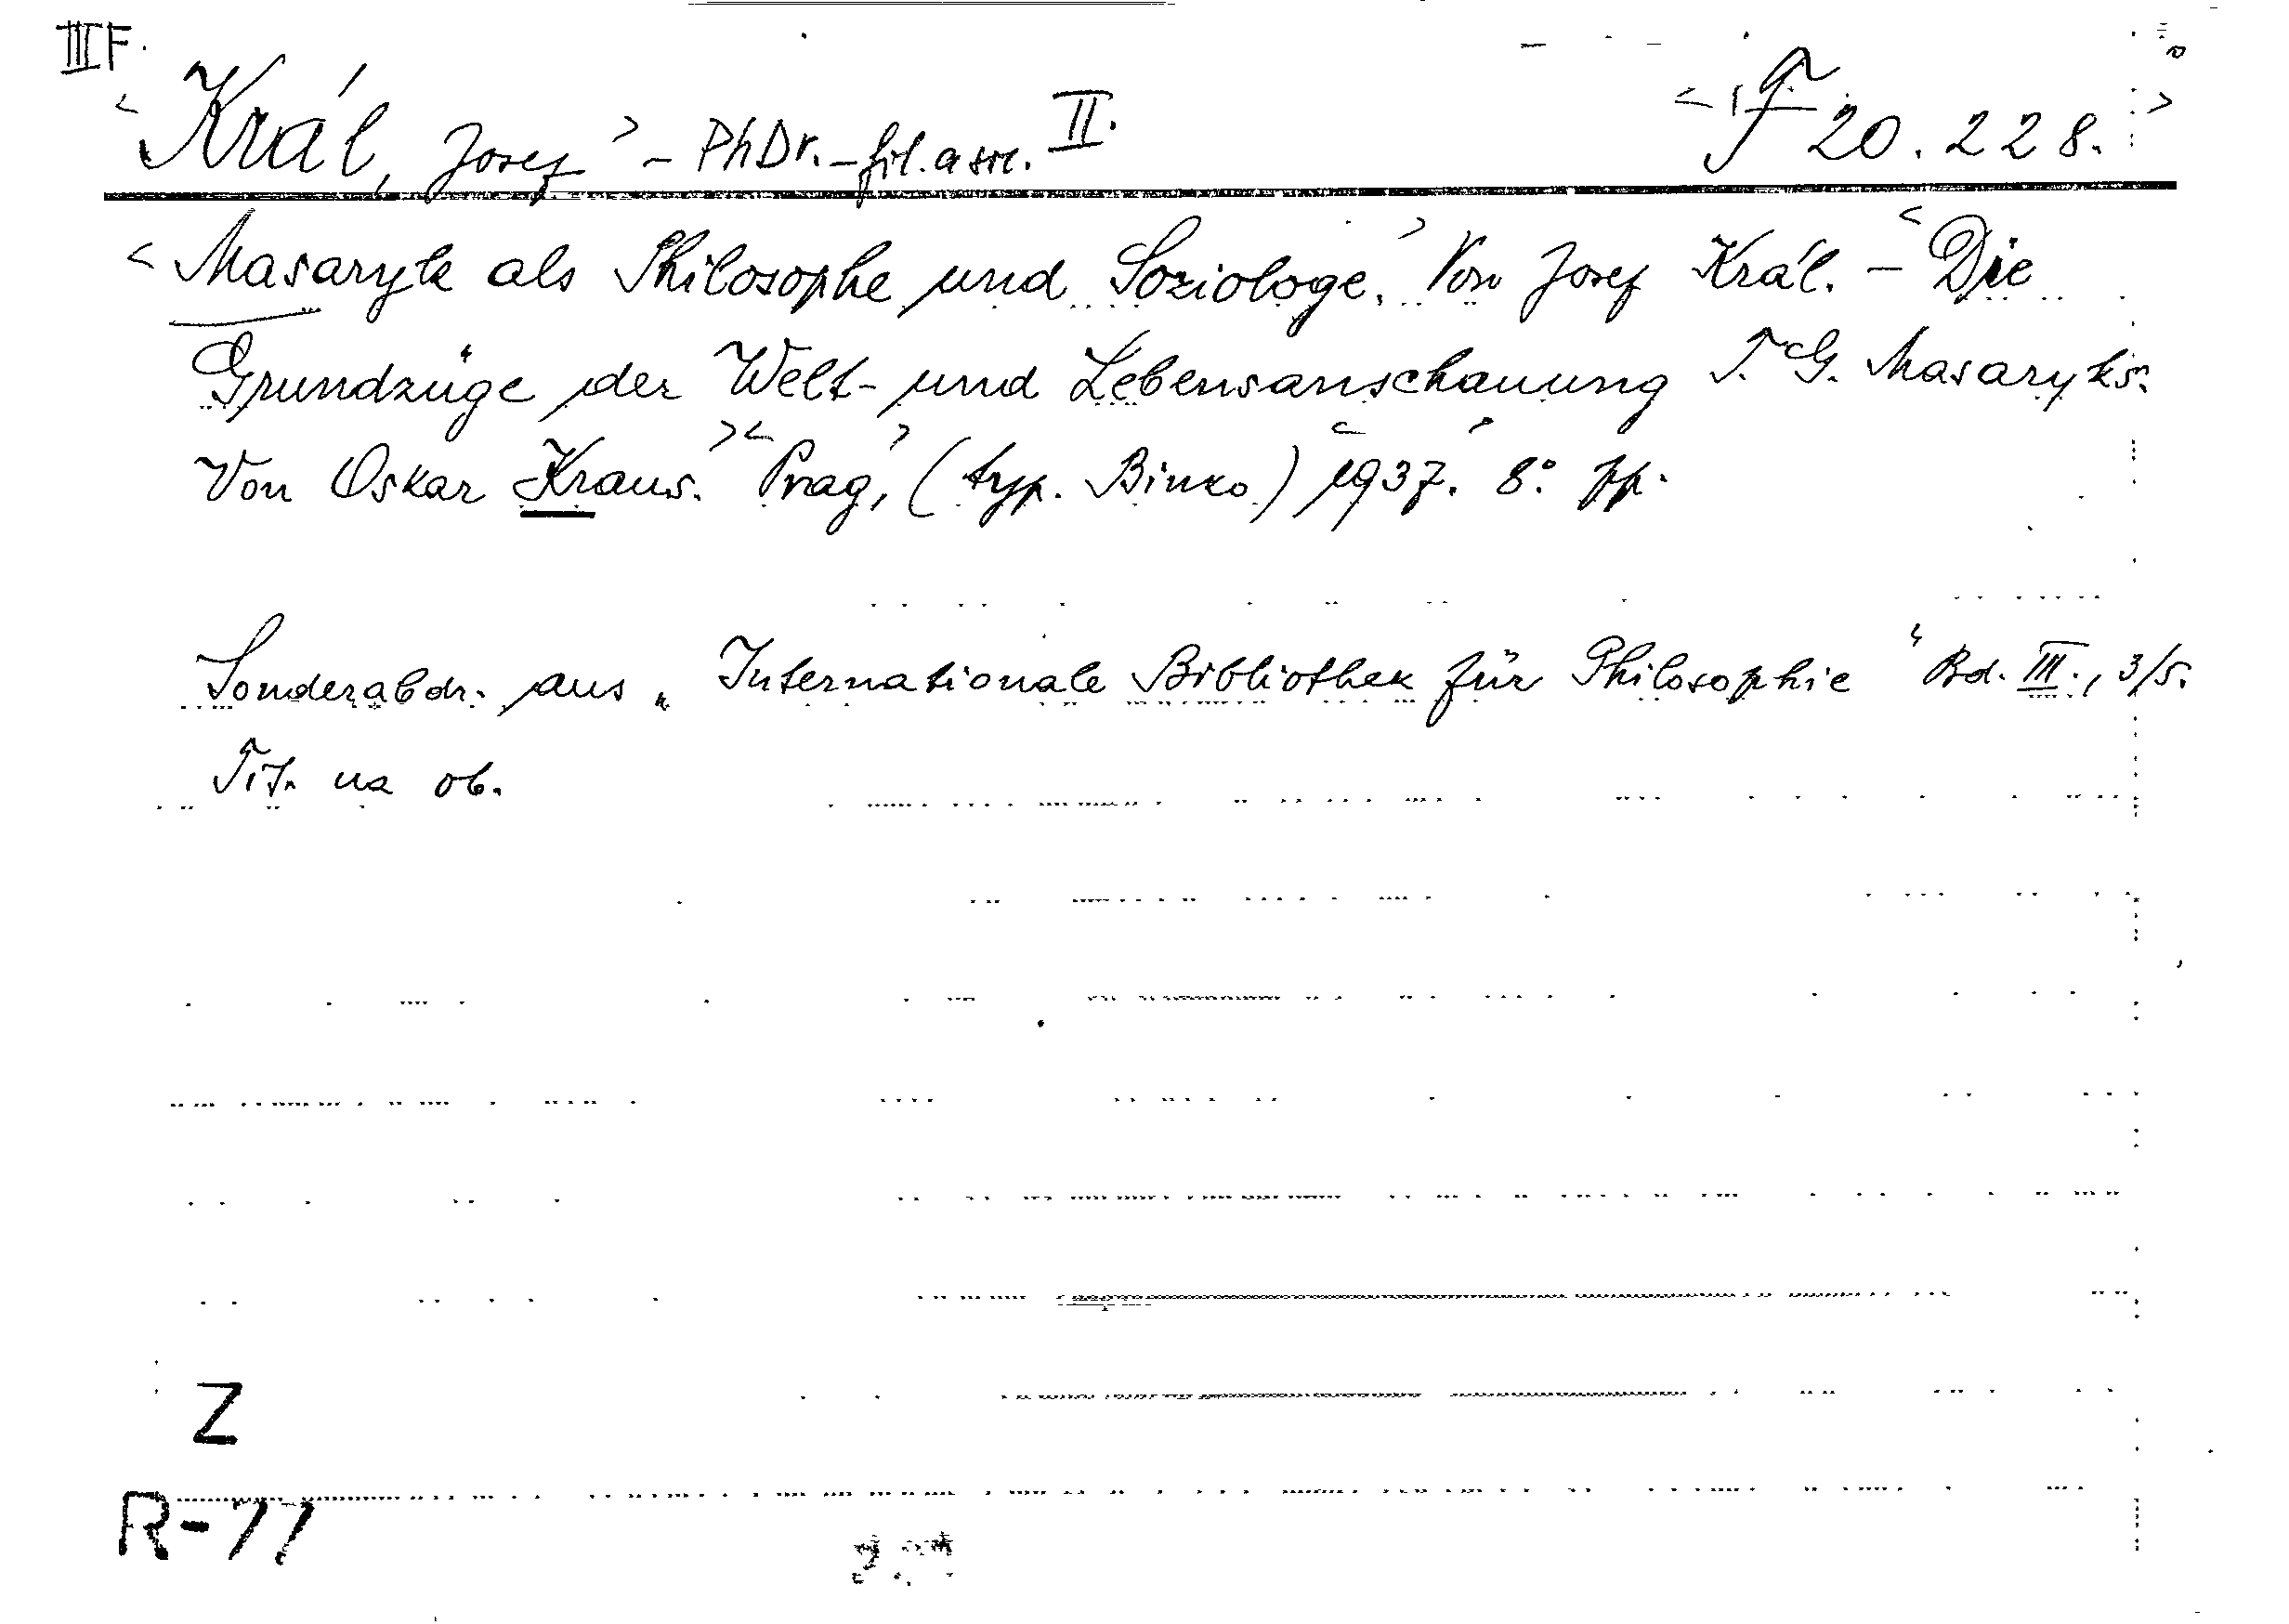 III F.
<Král, Josef> - PhDr. - fil. a soc. II. <F 20.228.>
<Masaryk als Philosophe und Soziologe.> Von Josef Král. - <Die
Grundzüge der Welt- und Lebensanschauung T. G. Masaryks.
Von Oskar Kraus.> <Prag,> (typ. Binko) <1937.> 8°. pp.
Sonderabdr. aus „Internationale Bibliothek für Philosophie" Bd. III., 3/5.
Tit. na ob.
Z
R-77